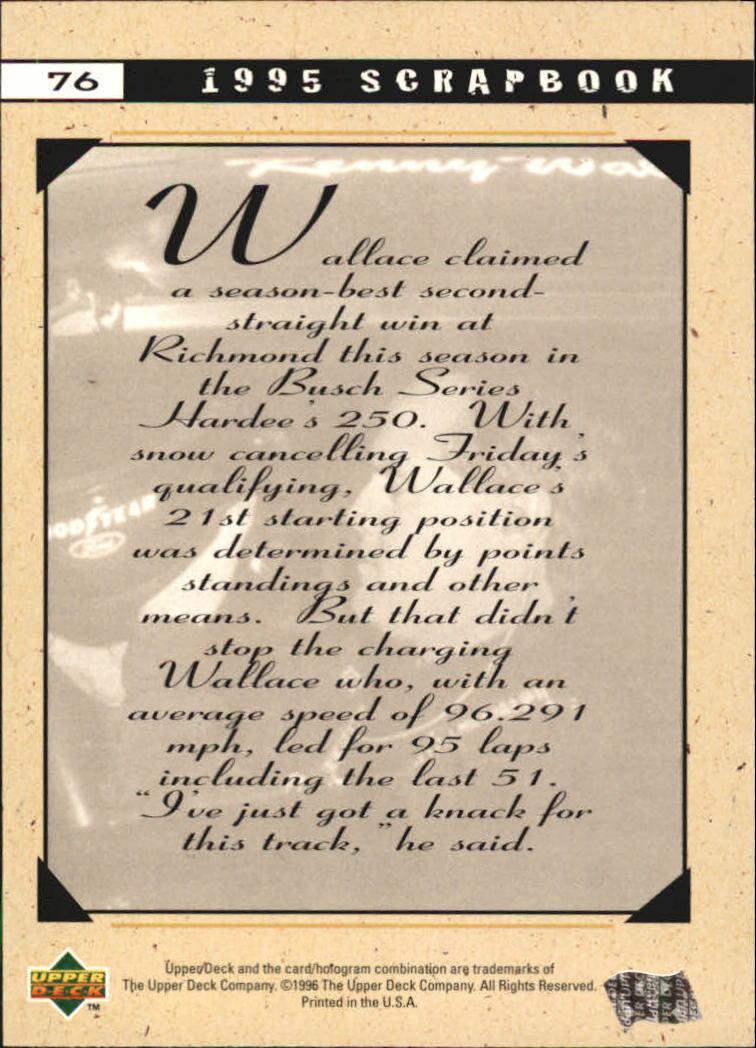 76 1995 SCRAPBOOK
Kenny Wa
Wallace claimed
a season-best second-
straight win at
Richmond this season in
the Busch Series
Hardee's 250. With
snow cancelling Friday's
qualifying, Wallace's
21st starting position
was determined by points
standings and other
means. But that didn't
stop the charging
Wallace who, with an
average speed of 96.291
mph, led for 95 laps
including the last 51.
"I've just got a knack for
this track," he said.
OODYEAR
Ford
UPPER
DECK
TM
Upper Deck and the card/hologram combination are trademarks of
The Upper Deck Company. ©1996 The Upper Deck Company. All Rights Reserved.
Printed in the U.S.A.